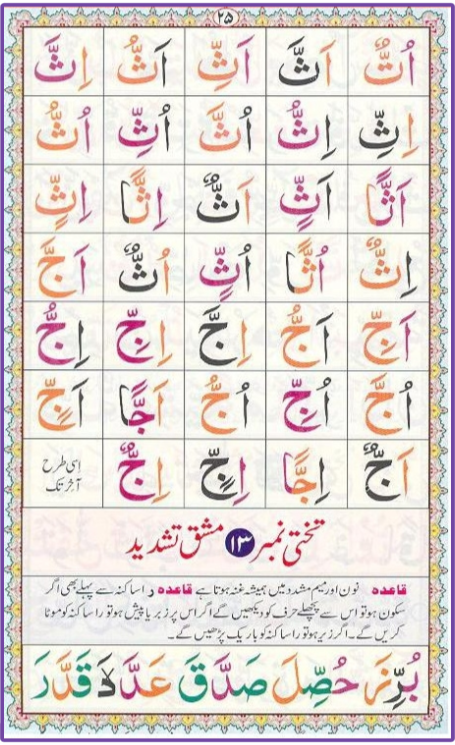 ۲۵
اُتٌّ اَثَّ اَثِّ اَثُّ اِثَّ
اِثِّ اِثُّ اُثَّ اُثِّ اُثُّ
اَثًّا اَثٍّ اَثٌّ اِثًّا اِثٍّ
اِثٌّ اُثًّا اُثٍّ اُثٌّ اَجَّ
اَجِّ اَجُّ اِجَّ اِجِّ اِجُّ
اُجَّ اُجِّ اُجُّ اَجًّا اَجٍّ
اَجٌّ اِجًّا اِجٍّ اِجٌّ اسی طرح
آخر تک
تختی نمبر ۱۳ مشق تشدید
قاعدہ نون اور میم مشدد میں ہمیشہ غنہ ہوتا ہے قاعدہ را ساکنہ سے پہلے بھی اگر
سکون ہو تو اس سے پچھلے حرف کو دیکھیں گے اگر اس پر زبر یا پیش ہو تو را ساکنہ کو موٹا
کریں گے۔ اگر زیر ہو تو را ساکنہ کو باریک پڑھیں گے۔
حُصِّلَ صَدَّقَ قَدَّرَ